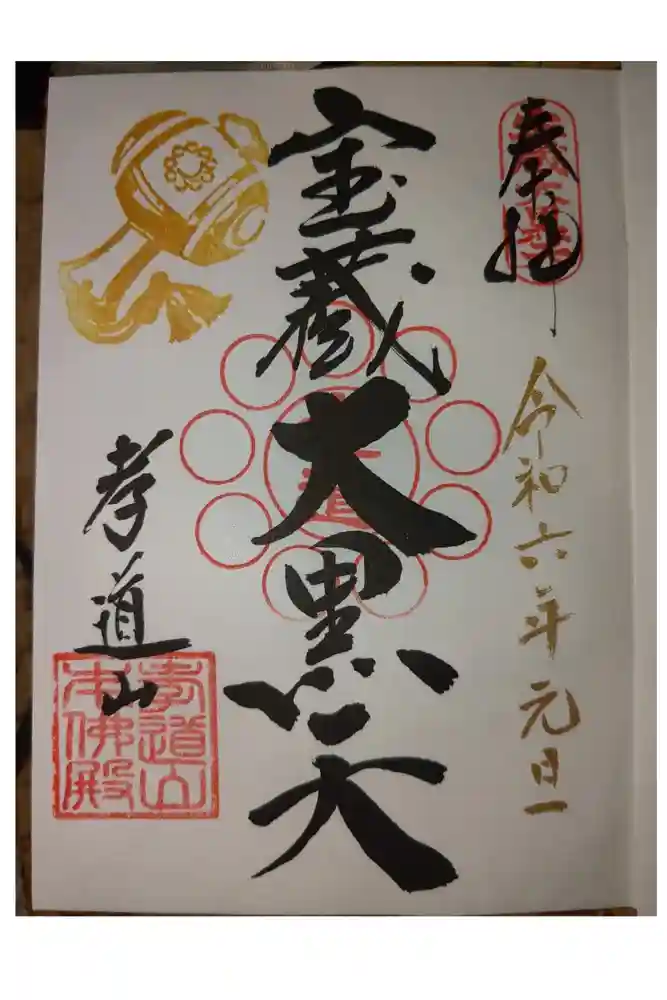 奉拝
令和六年元旦
宝蔵大黒天
孝道山
孝道山
本佛殿